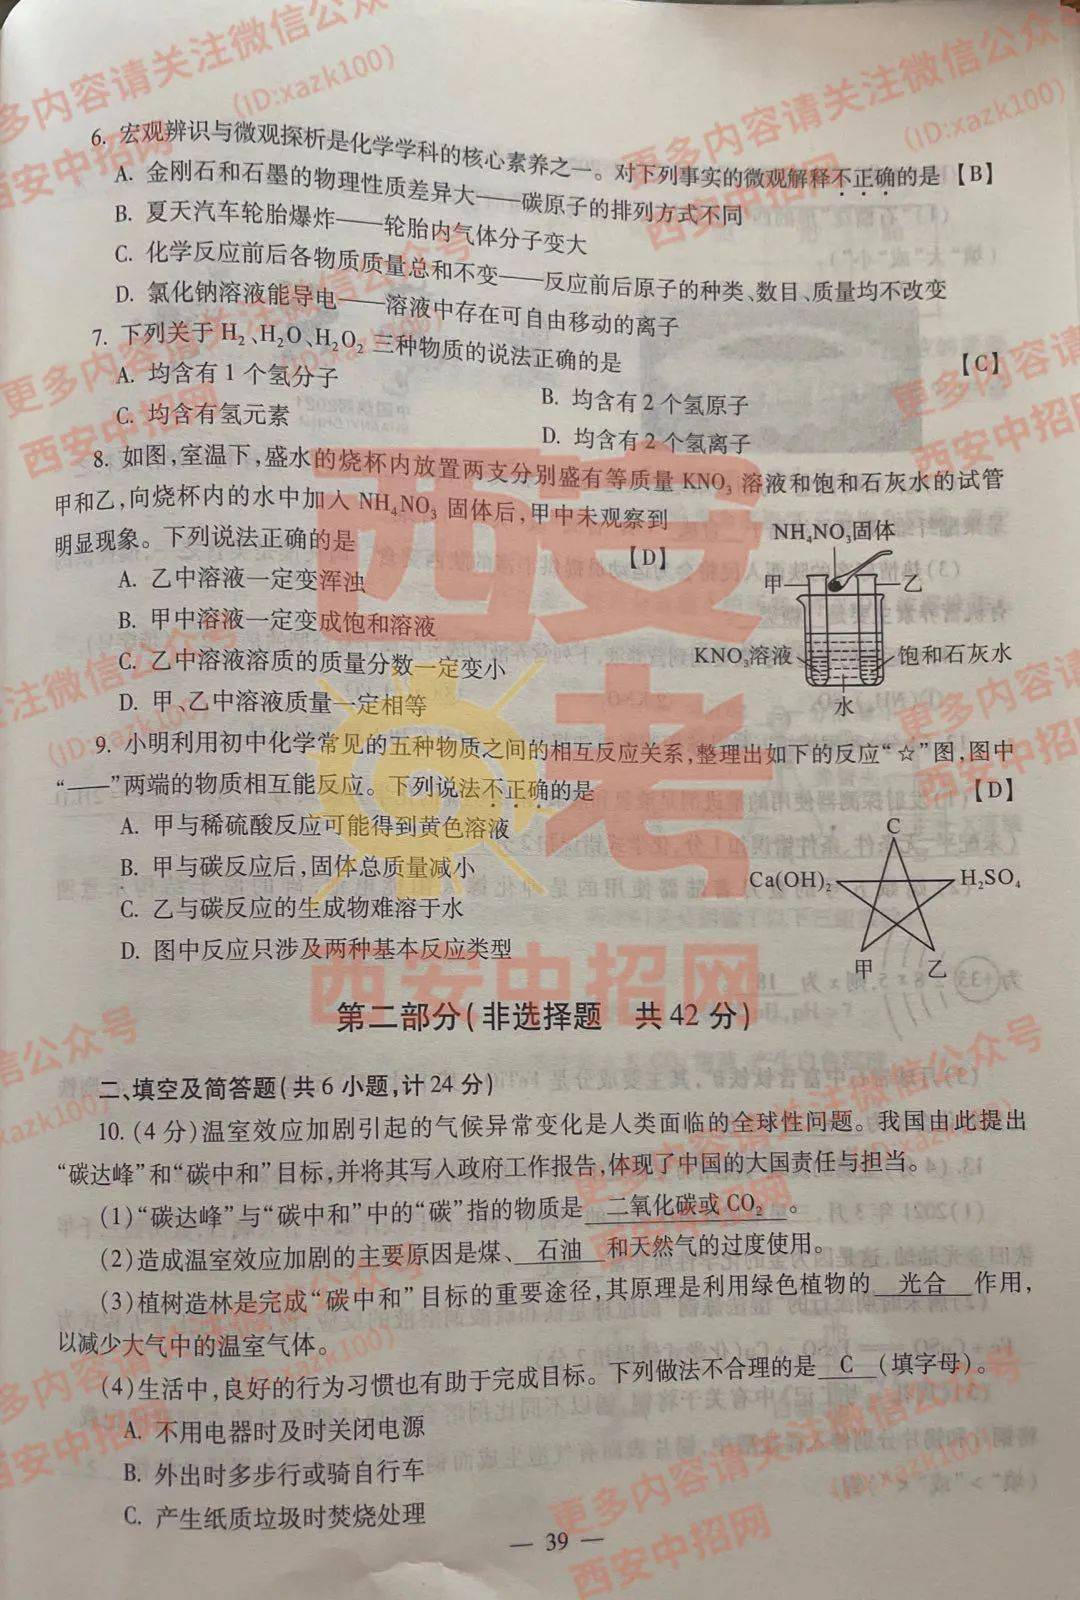 6. 宏观辨识与微观探析是化学学科的核心素养之一。对下列事实的微观解释不正确的是【B】
A. 金刚石和石墨的物理性质差异大——碳原子的排列方式不同
B. 夏天汽车轮胎爆炸——轮胎内气体分子变大
C. 化学反应前后各物质质量总和不变——反应前后原子的种类、数目、质量均不改变
D. 氯化钠溶液能导电——溶液中存在可自由移动的离子
7. 下列关于 H₂、H₂O、H₂O₂ 三种物质的说法正确的是 【C】
A. 均含有 1 个氢分子
B. 均含有 2 个氢原子
C. 均含有氢元素
D. 均含有 2 个氢离子
8. 如图,室温下,盛水的烧杯内放置两支分别盛有等质量 KNO₃ 溶液和饱和石灰水的试管
甲和乙,向烧杯内的水中加入 NH₄NO₃ 固体后,甲中未观察到
明显现象。下列说法正确的是 【D】
A. 乙中溶液一定变浑浊
B. 甲中溶液一定变成饱和溶液
C. 乙中溶液溶质的质量分数一定变小
D. 甲、乙中溶液质量一定相等
NH₄NO₃固体
甲
乙
KNO₃溶液
饱和石灰水
水
9. 小明利用初中化学常见的五种物质之间的相互反应关系,整理出如下的反应“☆”图,图中
“——”两端的物质相互能反应。下列说法不正确的是 【D】
A. 甲与稀硫酸反应可能得到黄色溶液
B. 甲与碳反应后,固体总质量减小
C. 乙与碳反应的生成物难溶于水
D. 图中反应只涉及两种基本反应类型
C
Ca(OH)₂
H₂SO₄
甲
乙
第二部分(非选择题 共 42 分)
二、填空及简答题(共 6 小题,计 24 分)
10. (4 分)温室效应加剧引起的气候异常变化是人类面临的全球性问题。我国由此提出
“碳达峰”和“碳中和”目标,并将其写入政府工作报告,体现了中国的大国责任与担当。
(1)“碳达峰”与“碳中和”中的“碳”指的物质是 二氧化碳或 CO₂ 。
(2)造成温室效应加剧的主要原因是煤、 石油 和天然气的过度使用。
(3)植树造林是完成“碳中和”目标的重要途径,其原理是利用绿色植物的 光合 作用,
以减少大气中的温室气体。
(4)生活中,良好的行为习惯也有助于完成目标。下列做法不合理的是 C (填字母)。
A. 不用电器时及时关闭电源
B. 外出时多步行或骑自行车
C. 产生纸质垃圾时焚烧处理
— 39 —
西安中考
西安中招网
更多内容请关注微信公众号
(ID:xazk100)
西安中招网